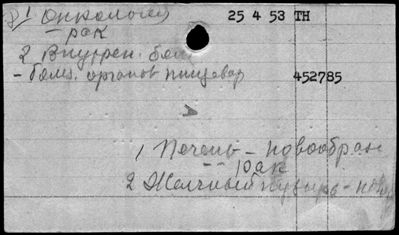 1 Онкология 25 4 53 TH
- рак
2 Внутрен. бол
- болез. органов пищевар 452785
1 Печень - новообран
-- рак
2 Желчный пузырь - но